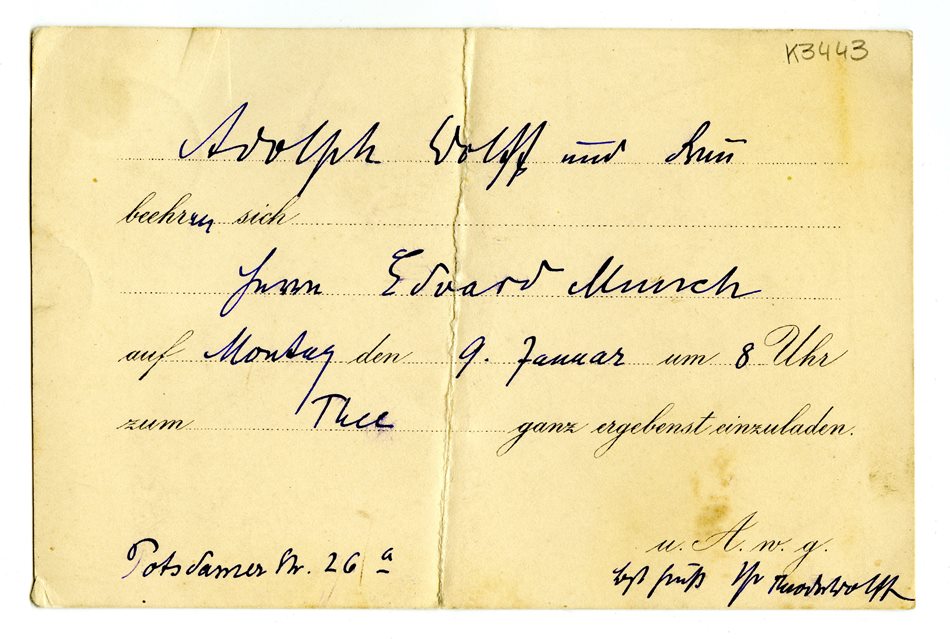 K3443
Adolph Wolff und Frau
beehren sich
Herrn Edvard Munch
auf Montag den 9. Januar um 8 Uhr
zum Thee ganz ergebenst einzuladen.
u. A. w. g.
Potsdamer Str. 26 a
Best Gruß Ihr Theodor Wolff